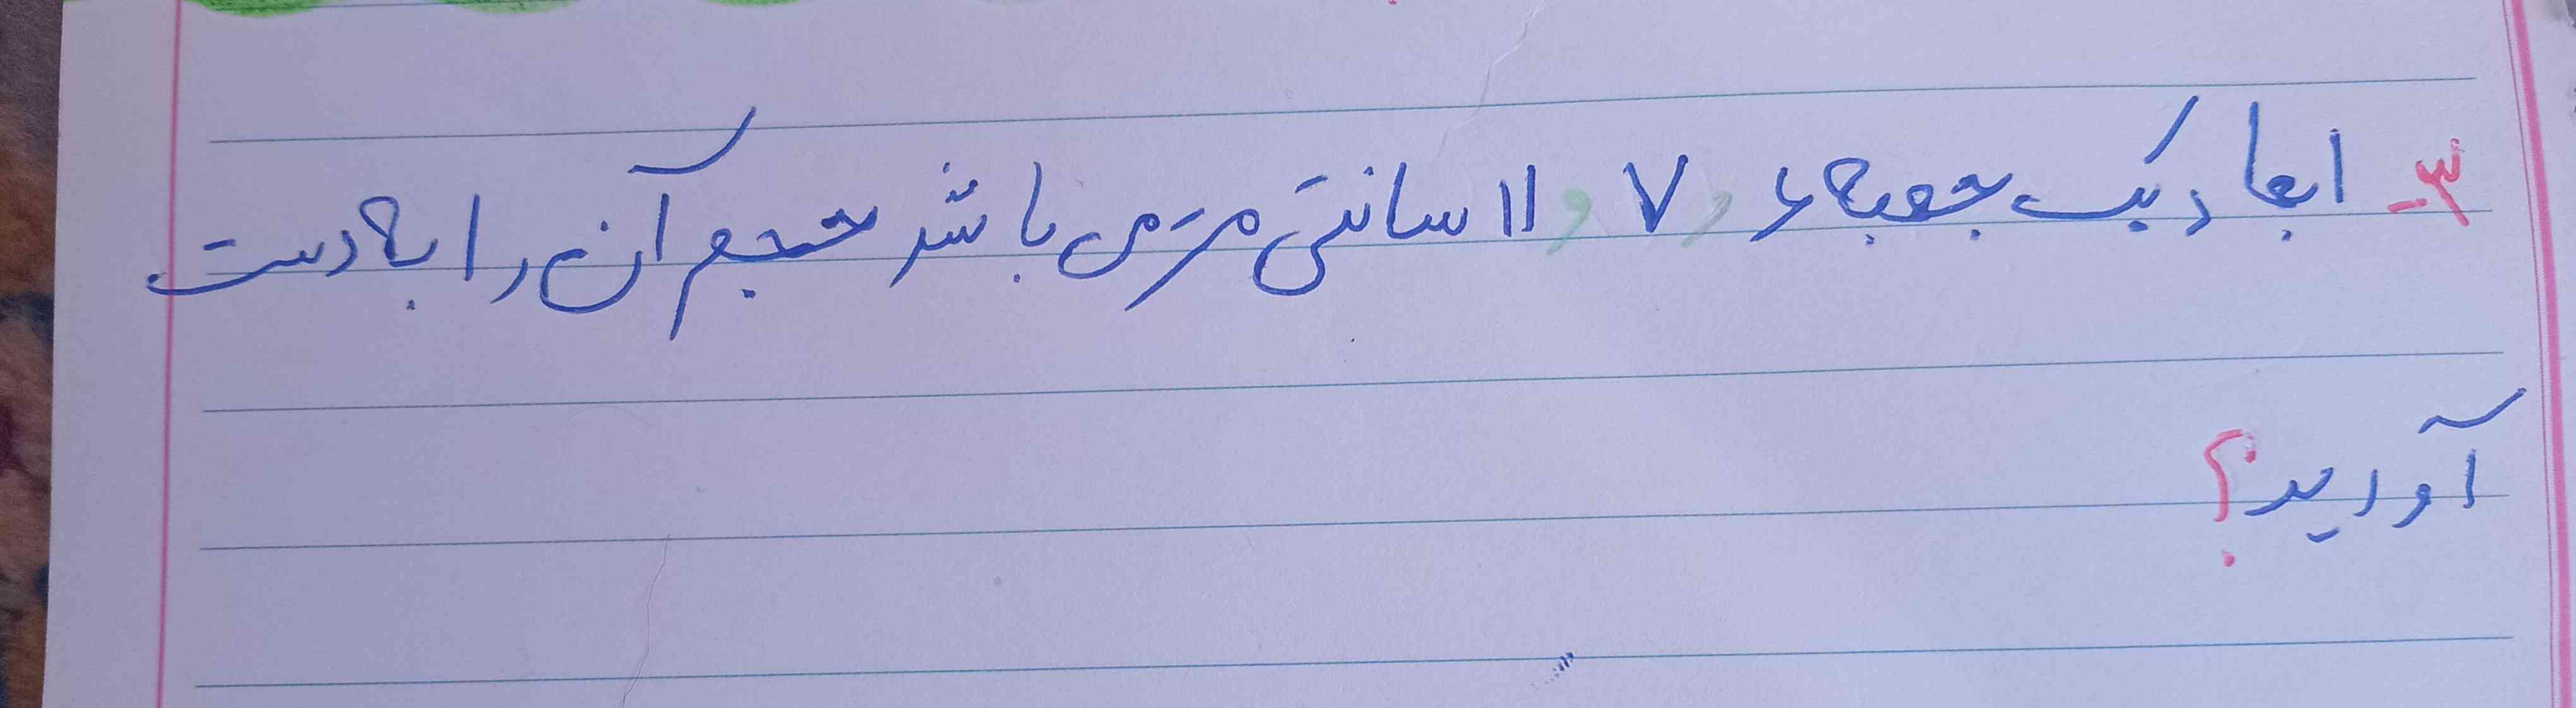 ۳- ابعاد یک جعبه ۶ و ۷ و ۱۱ سانتی متر می باشد حجم آن را به دست
آورید؟